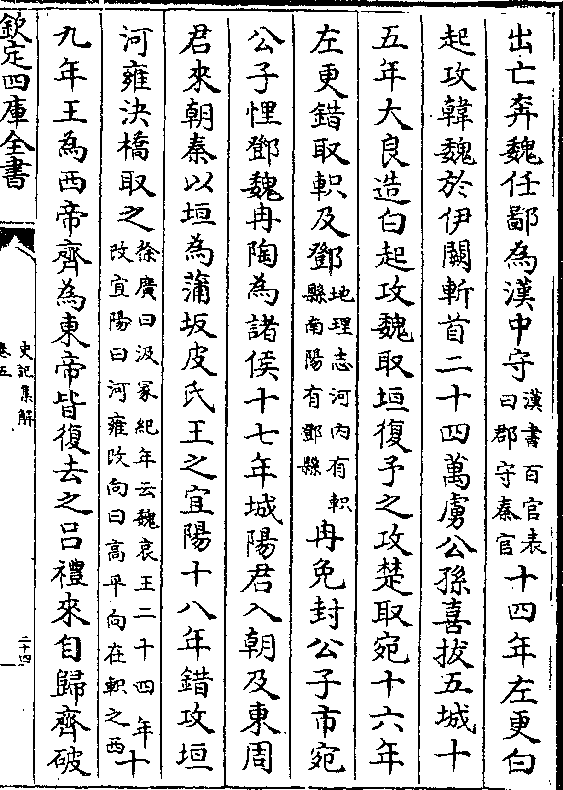 出亡奔魏任鄙為漢中守漢書百官表曰郡守秦官十四年左更白
起攻韓魏於伊闕斬首二十四萬虜公孫喜拔五城十
五年大良造白起攻魏取垣復予之攻楚取宛十六年
左更錯取軹及鄧地理志河內有軹縣南陽有鄧縣冉免封公子市宛
公子悝鄧魏冉陶為諸侯十七年城陽君入朝及東周
君來朝秦以垣為蒲坂皮氏王之宜陽十八年錯攻垣
河雍決橋取之徐廣曰汲冢紀年云魏哀王二十四年改宜陽曰河雍改向曰高平向在軹之西十
九年王為西帝齊為東帝皆復去之呂禮來自歸齊破
欽定四庫全書
史記集解
卷五
二十四